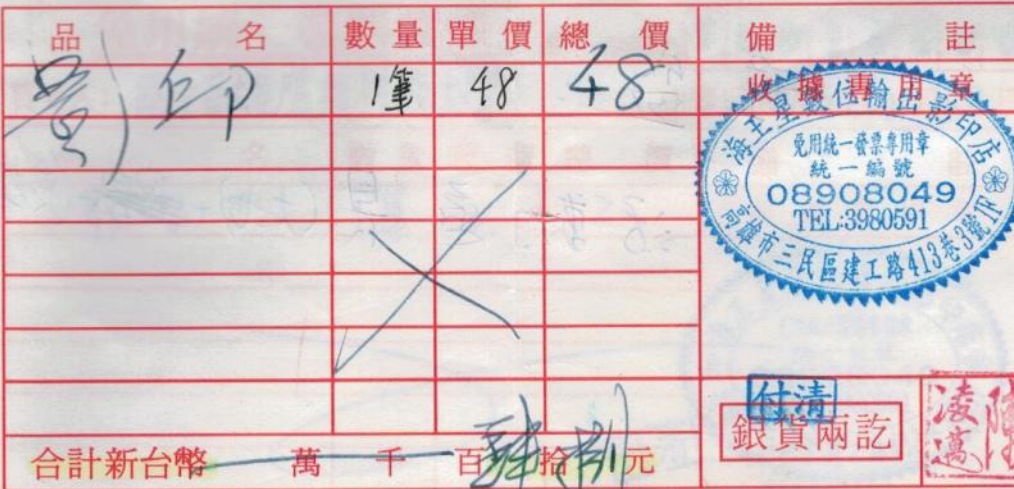 品名 數量 單價 總價 備註
影印 1筆 48 48
收據專用章
海王星數位輸出影印店
免用統一發票專用章
統一編號
08908049
TEL:3980591
高雄市三民區建工路413巷3號1F
付清
銀貨兩訖
合計新台幣 萬 千 百肆拾捌元